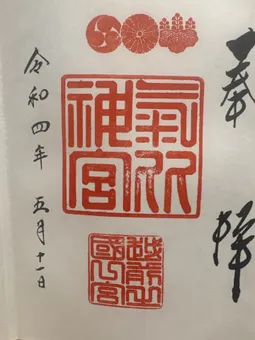 奉拝
氣比
神宮
越前
國 宮
令和四年 五月十一日